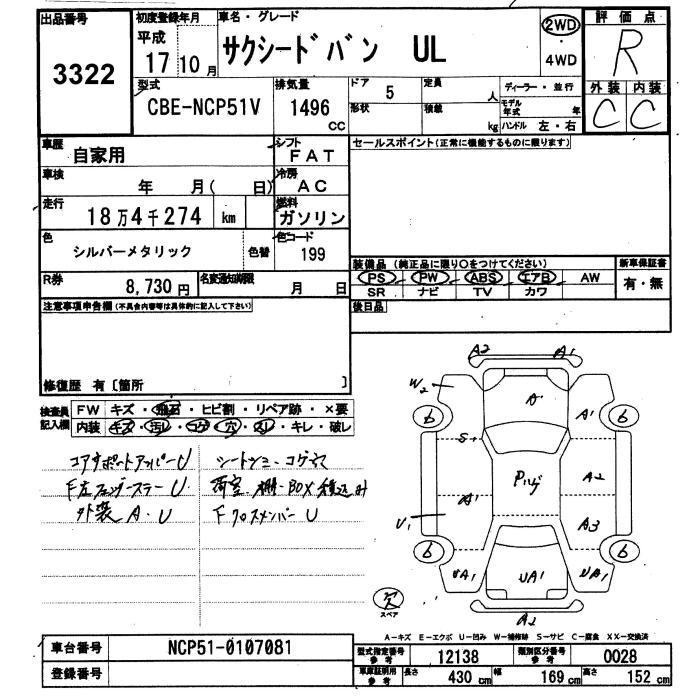 出品番号
3322
初度登録年月
平成
17 10 月
車名・グレード
サクシードバン UL
2WD
・
4WD
評価点
R
外装 内装
C C
型式
CBE-NCP51V
排気量
1496
CC
ドア
5
定員
人
形状
積載
kg
ディーラー・並行
モデル
年式 年
ハンドル 左・右
車歴
自家用
シフト
FAT
セールスポイント(正常に機能するものに限ります)
車検
年 月( 日)
冷房
AC
走行
18万4千274 km
燃料
ガソリン
色
シルバーメタリック
色替
色コード
199
装備品 (純正品に限り○をつけてください)
PS PW ABS エアB AW
SR ナビ TV カワ
新車保証書
有・無
R券
8,730 円
名変通知期限
月 日
後日品
注意事項申告欄(不具合内容等は具体的に記入して下さい)
修復歴 有〔箇所 〕
検査員
記入欄
FW キズ・飛石・ヒビ割・リペア跡・×要
内装 キズ・汚レ・コゲ・穴・スレ・キレ・破レ
コアサポートアッパーU
シートシミ・コゲ穴
F左フェンダー U
荷室・棚・BOX
外装 A・U
FクロスメンバーU
A2 A1
W2
A'
A1
6 6
S1
Pルーフ
A2
A1
U1
A3
6 6
UA1 UA1 UA1
A2
欠
スペア
A-キズ E-エクボ U-凹み W-補修跡 S-サビ C-腐食 XX-交換済
車台番号
NCP51-0107081
登録番号
型式指定番号
参考
12138
類別区分番号
参考
0028
車庫証明用
参考
長さ
430 cm
幅
169 cm
高さ
152 cm